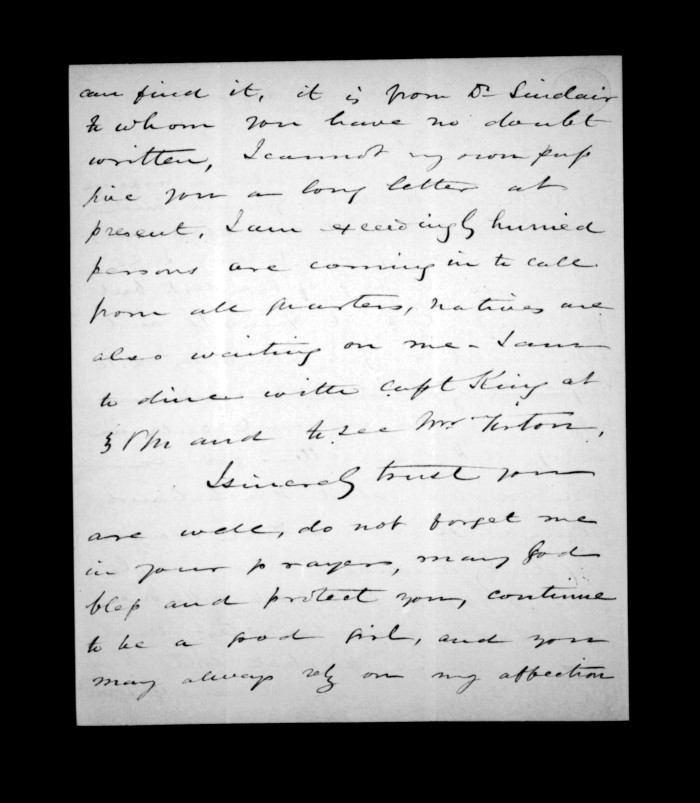 can find it, it is from Dr Sinclair
to whom you have no doubt
written, I cannot my own pufs
give you a long letter at
present, I am exceedingly hurried
persons are coming in to call
from all quarters, natives are
also waiting on me - I am
to dine with Capt King at
3 PM and to see Mrs Turton,
I sincerely trust you
are well, do not forget me
in your prayers, may God
blefs and protect you, continue
to be a good girl, and you
may always rely on my affection